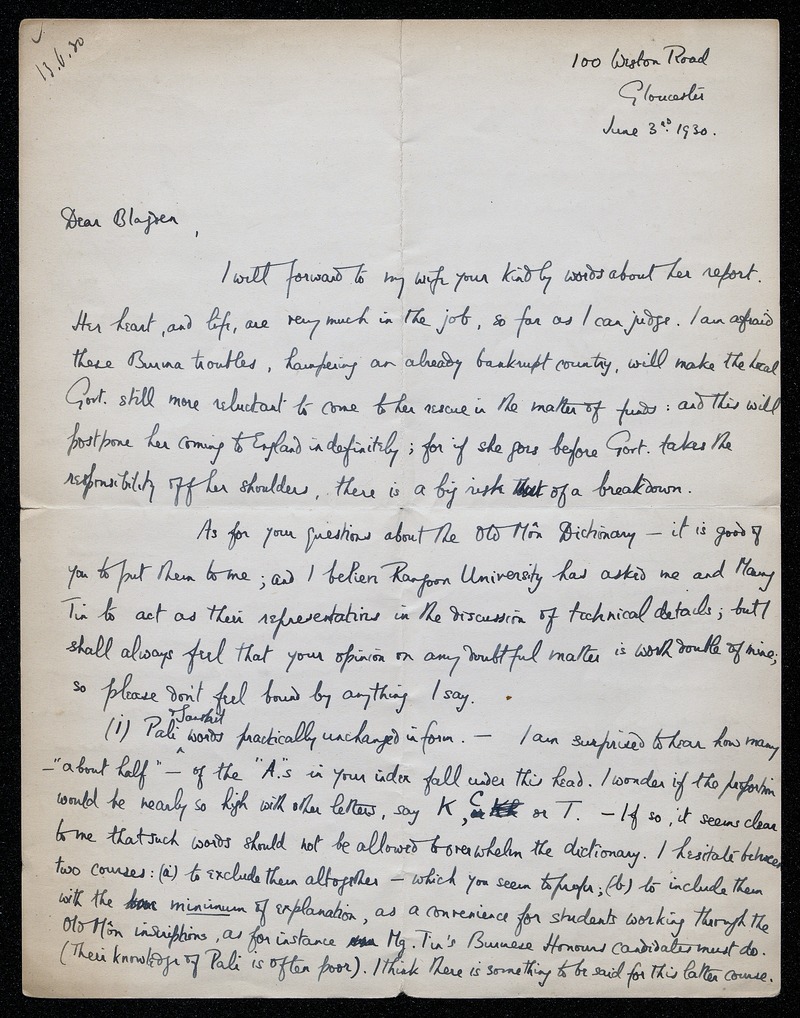 13.6.30
100 Weston Road
Gloucester
June 3rd. 1930.
Dear Blagden,
I will forward to my wife your kindly words about her report.
Her heart, and life, are very much in the job, so far as I can judge. I am afraid
these Burma troubles, hampering an already bankrupt country, will make the local
Govt. still more reluctant to come to her rescue in the matter of funds: and this will
postpone her coming to England indefinitely; for if she goes before Govt. takes the
responsibility off her shoulders, there is a big risk that of a breakdown.
As for your questions about the Old Môn Dictionary — it is good of
you to put them to me; and I believe Rangoon University has asked me and Maung
Tin to act as their representatives in the discussion of technical details; but I
shall always feel that your opinion on any doubtful matter is worth double of mine;
so please don't feel bound by anything I say.
+ Sanskrit
(i) Pali ^ words practically unchanged in form. — I am surprised to hear how many
— "about half" — of the "A."s in your index fall under this head. I wonder if the proportion
would be nearly so high with other letters, say K, C or T. — If so, it seems clear
to me that such words should not be allowed to overwhelm the dictionary. I hesitate between
two courses: (a) to exclude them altogether — which you seem to prefer; (b) to include them
with the minimum of explanation, as a convenience for students working through the
Old Môn inscriptions, as for instance Mg. Tin's Burmese Honours candidates must do.
(Their knowledge of Pali is often poor). I think there is something to be said for this latter course.